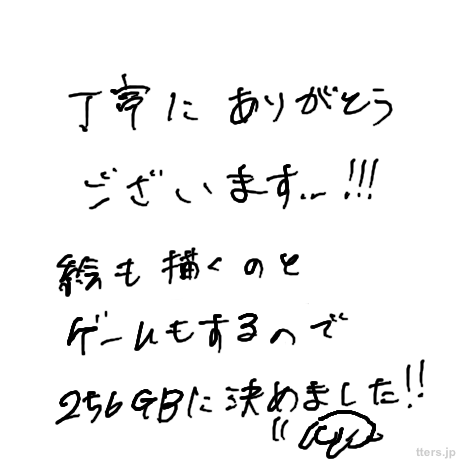 丁寧にありがとう
ございます…!!!
絵も描くのと
ゲームもするので
256GBに決めました!!
tters.jp